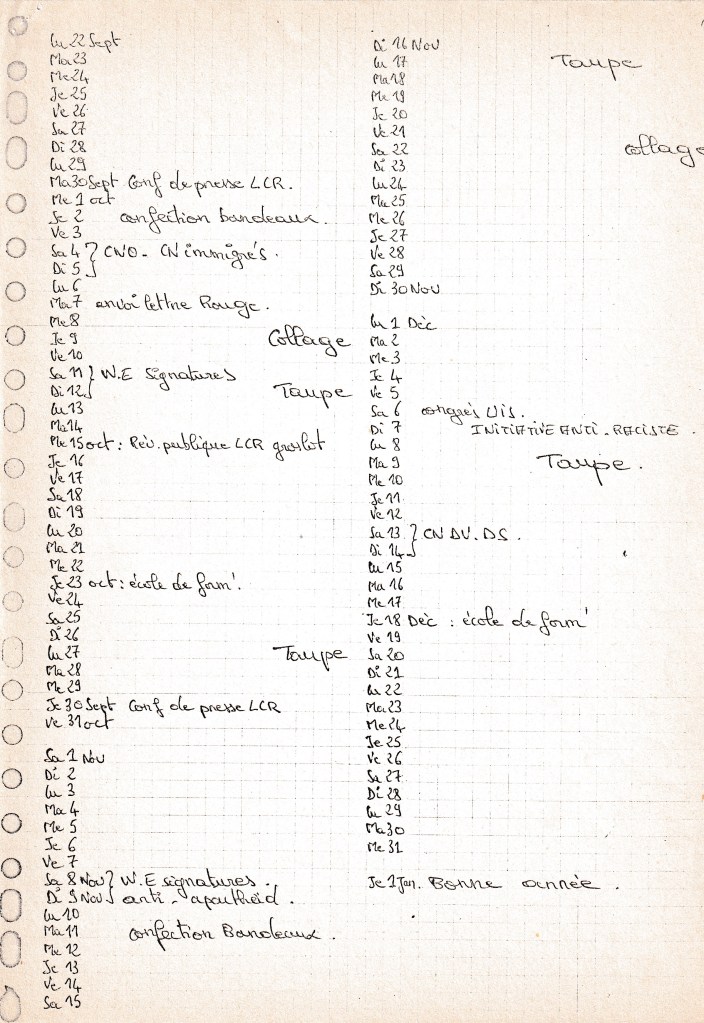 Lu 22 Sept
Ma 23
Me 24
Je 25
Ve 26
Sa 27
Di 28
Lu 29
Ma 30 Sept Conf de presse LCR.
Me 1 oct
Je 2 confection bandeaux.
Ve 3
Sa 4 } CNO - CN immigrés.
Di 5
Lu 6
Ma 7 envoi lettre Rouge.
Me 8
Je 9 Collage
Ve 10
Sa 11 } W.E Signatures
Di 12 Taupe
Lu 13
Ma 14
Me 15 oct : Réu. publique LCR groslot
Je 16
Ve 17
Sa 18
Di 19
Lu 20
Ma 21
Me 22
Je 23 oct : école de form'.
Ve 24
Sa 25
Di 26
Lu 27 Taupe
Ma 28
Me 29
Je 30 Sept Conf de presse LCR
Ve 31 oct
Sa 1 Nov
Di 2
Lu 3
Ma 4
Me 5
Je 6
Ve 7
Sa 8 Nov } W.E signatures.
Di 9 Nov anti-apartheid.
Lu 10
Ma 11 confection Bandeaux.
Me 12
Je 13
Ve 14
Sa 15
Di 16 Nov
Lu 17 Taupe
Ma 18
Me 19
Je 20
Ve 21
Sa 22 collage
Di 23
Lu 24
Ma 25
Me 26
Je 27
Ve 28
Sa 29
Di 30 Nov
Lu 1 Déc
Ma 2
Me 3
Je 4
Ve 5
Sa 6 congrès UIS.
Di 7 INITIATIVE ANTI-RACISTE.
Lu 8
Ma 9 Taupe.
Me 10
Je 11
Ve 12
Sa 13 } CN DV. DS.
Di 14
Lu 15
Ma 16
Me 17
Je 18 Déc : école de form'
Ve 19
Sa 20
Di 21
Lu 22
Ma 23
Me 24
Je 25
Ve 26
Sa 27
Di 28
Lu 29
Ma 30
Me 31
Je 1 Jan. Bonne année.